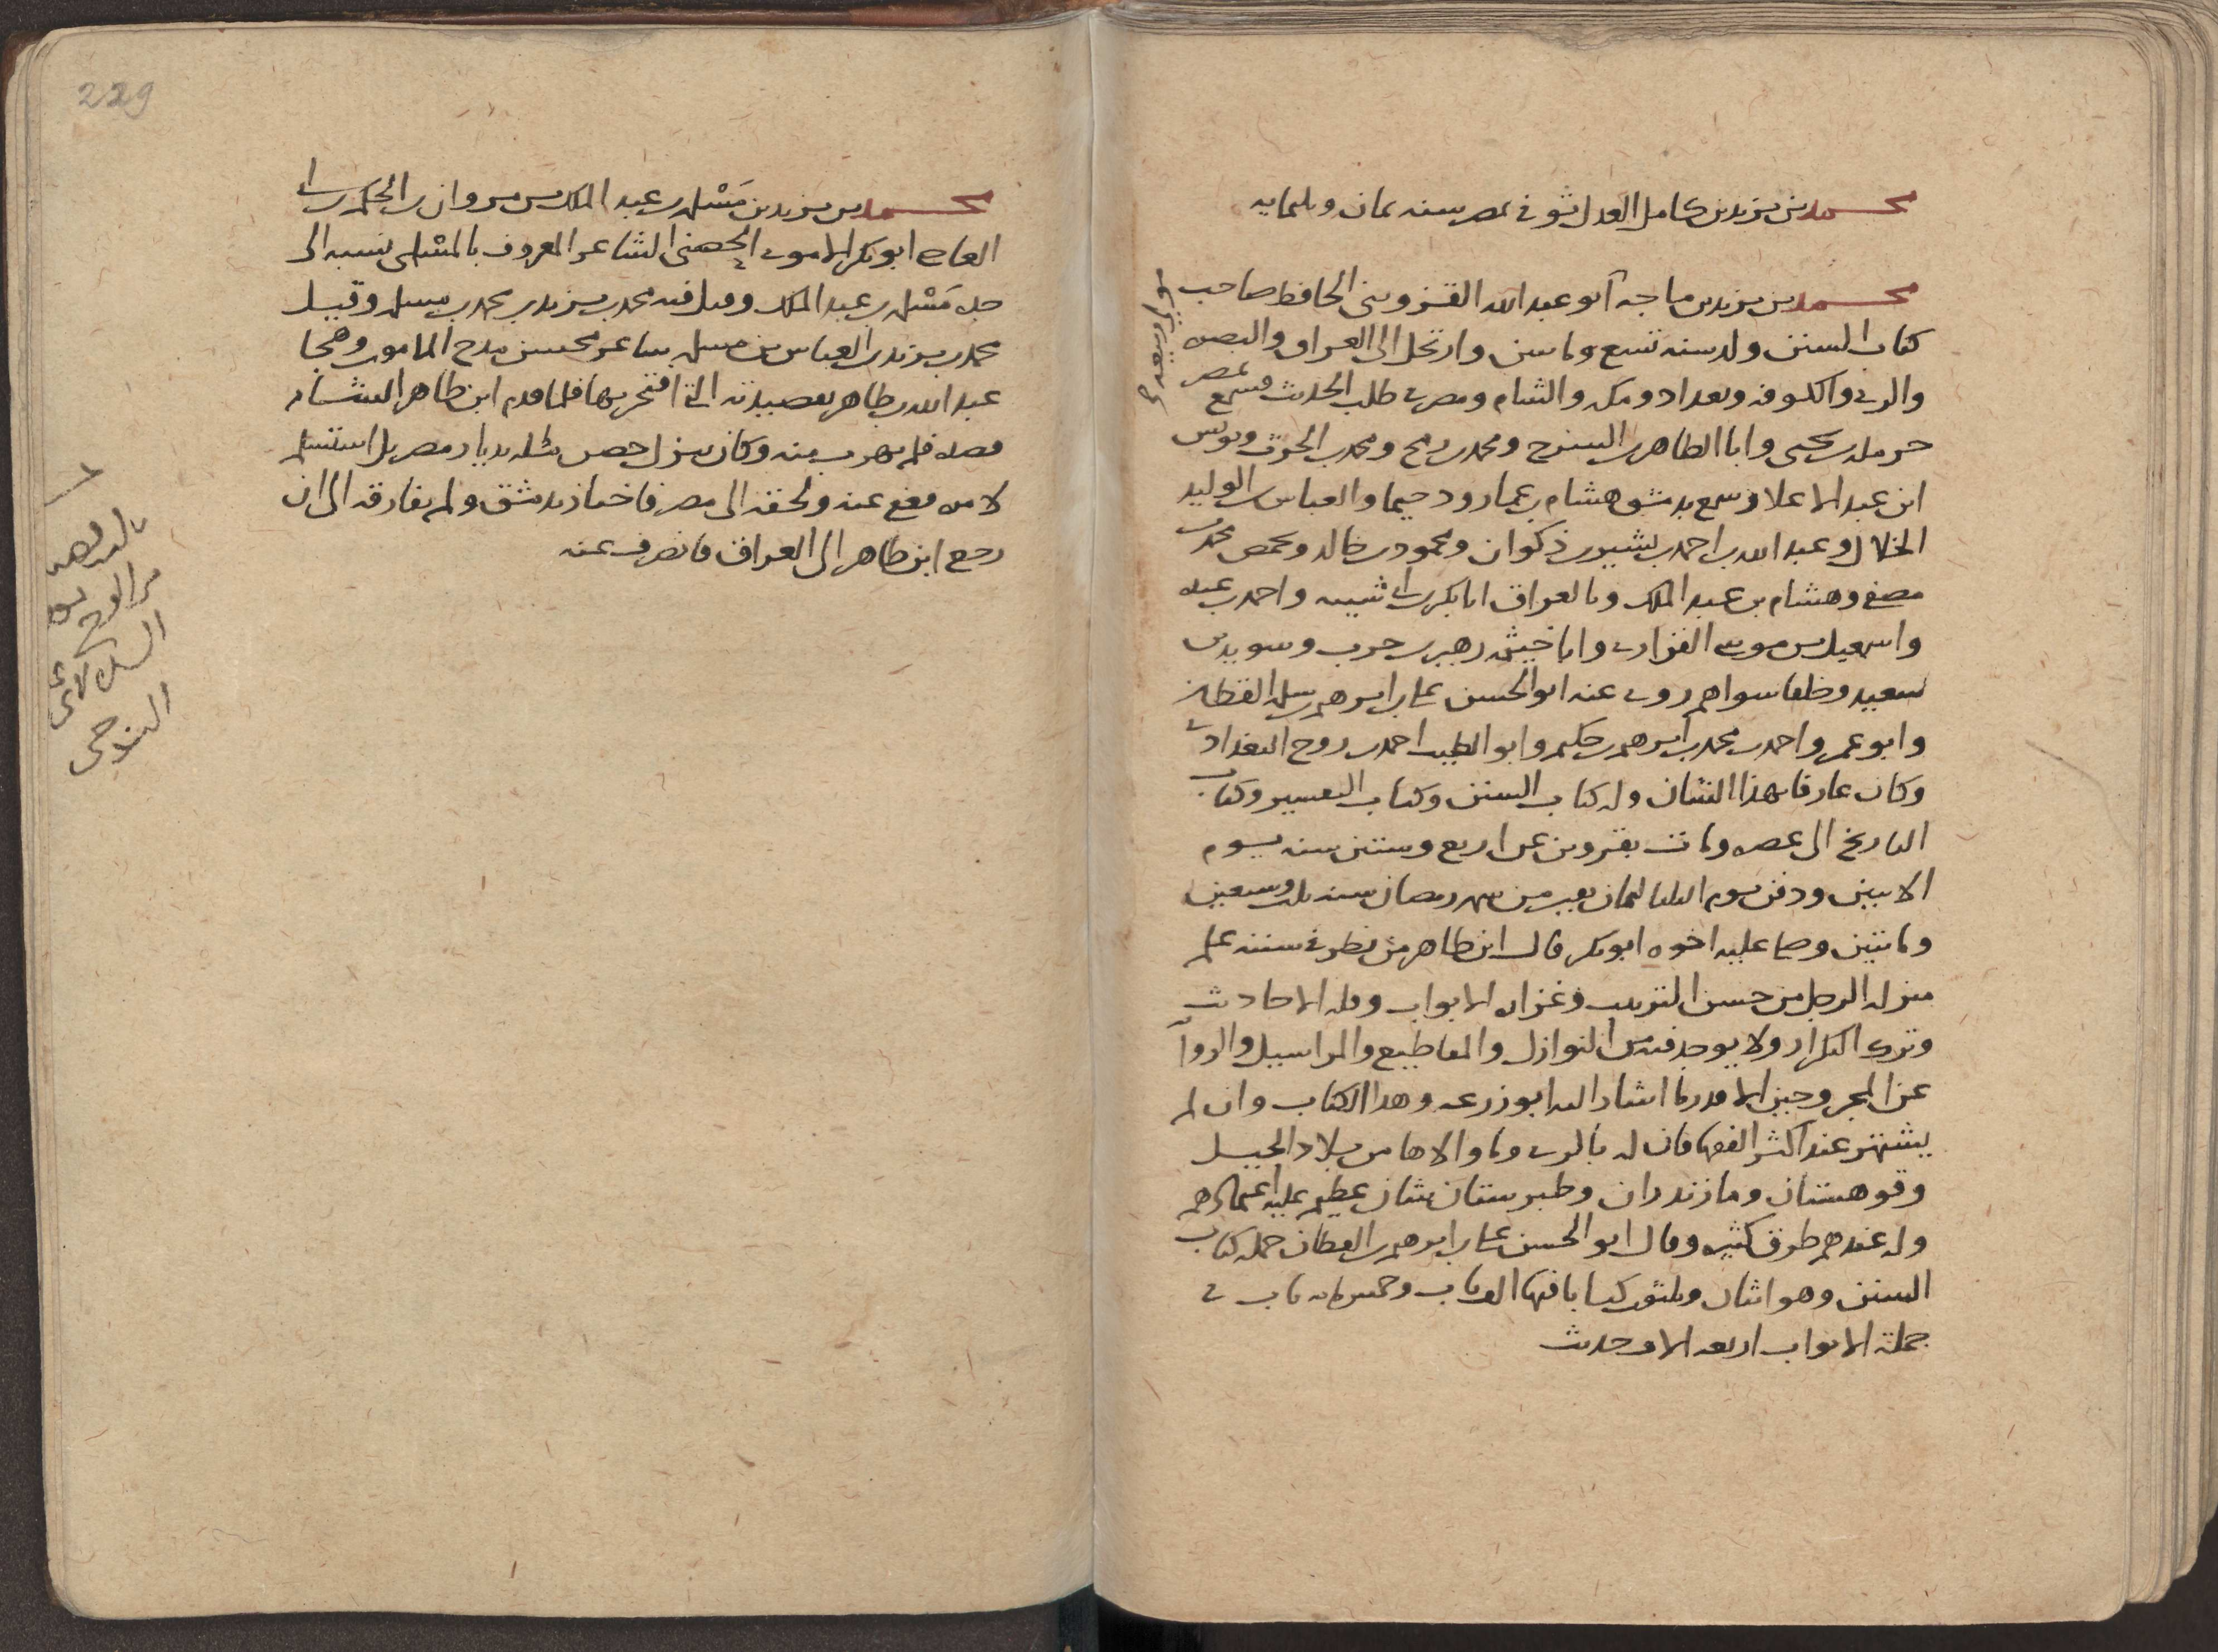 محمد بن يزيد بن كامل العدل توفي بمصر سنه ثمان وثلثمايه
محمد بن يزيد بن ماجه أبو عبد الله القزويني الحافظ صاحب
مولى ربيعه
كتاب السنن ولد سنه تسع وماتين وارتحل الى العراق والبصره
والري والكوفه وبغداد ومكه والشام ومصر في طلب الحديث فسمع بمصر
حرمله بن يحيى وابا الطاهر بن السرح ومحمد بن رمح ومحمد بن الحرث ويونس
ابن عبد الاعلا وسمع بدمشق هشام بن عمار ودحيما والعباس بن الوليد
الخلال وعبد الله بن احمد بن بشير بن ذكوان ومحمود بن خالد وبحمص محمد بن
مصفى وهشام بن عبد الملك وبالعراق ابا بكر بن ابي شيبه واحمد بن عبده
واسمعيل بن موسى الفزاري وابا خيثمه زهير بن حرب وسويد بن
سعيد وخلقا سواهم روى عنه ابو الحسن علي بن ابرهيم بن سلمه القطان
وابو عمرو احمد بن محمد بن ابرهيم بن حكيم وابو الطيب احمد بن روح البغدادي
وكان عارفا بهذا الشان وله كتاب السنن وكتاب التفسير وكتاب
التاريخ الى عصره ومات بقزوين عن اربع وستين سنه يوم
الاثنين ودفن يوم الثلثا لثمان بقين من شهر رمضان سنه ثلث وسبعين
وماتيين وصلى عليه اخوه ابو بكر قال ابن طاهر من نظر في سننه علم
منزله الرجل من حسن الترتيب وغزاره الابواب وقله الاحاديث
وترك التكرار ولا يوجد فيه من النوازل والمقاطيع والمراسيل والروآ
عن المجروحين الا قدر ما اشار اليه ابو زرعه وهذا الكتاب وان لم
يشتهر عند اكثر الفقها فان له بالري وما والاها من بلاد الجبل
وقوهستان ومازندران وطبرستان شان عظيم عليه اعتمادهم
وله عندهم طرق كثيره وقال ابو الحسن علي بن ابرهيم بن القطان جمله كتاب
السنن وهو اثنان وثلثون كتابا فيها الف باب وخمس مايه باب في
جملة الابواب اربعه الاف حديث
229
محمد بن يزيد بن مَسْلمه بن عبد الملك بن مروان بن الحكم بن ابي
العاص ابو بكر الاموي الحصني الشاعر المعروف بالمسْلمي نسبه الى
جده مَسْلمه بن عبد الملك وقيل فيه محمد بن يزيد بن محمد بن مسلمه وقيل
محمد بن يزيد بن العباس بن مسلمه شاعر محسن مدح المامون وهجا
عبد الله بن طاهر بقصيدته التي افتخر بها فلما قدم ابن طاهر الشام
قصده فلم يهرب منه وكان ينزل حصن مسلمه بديار مضر بل استسلم
لامره فعفى عنه ولحقه الى مصر فاختار دمشق ولم يفارقه الى ان
رجع ابن طاهر الى العراق فانصرف عنه